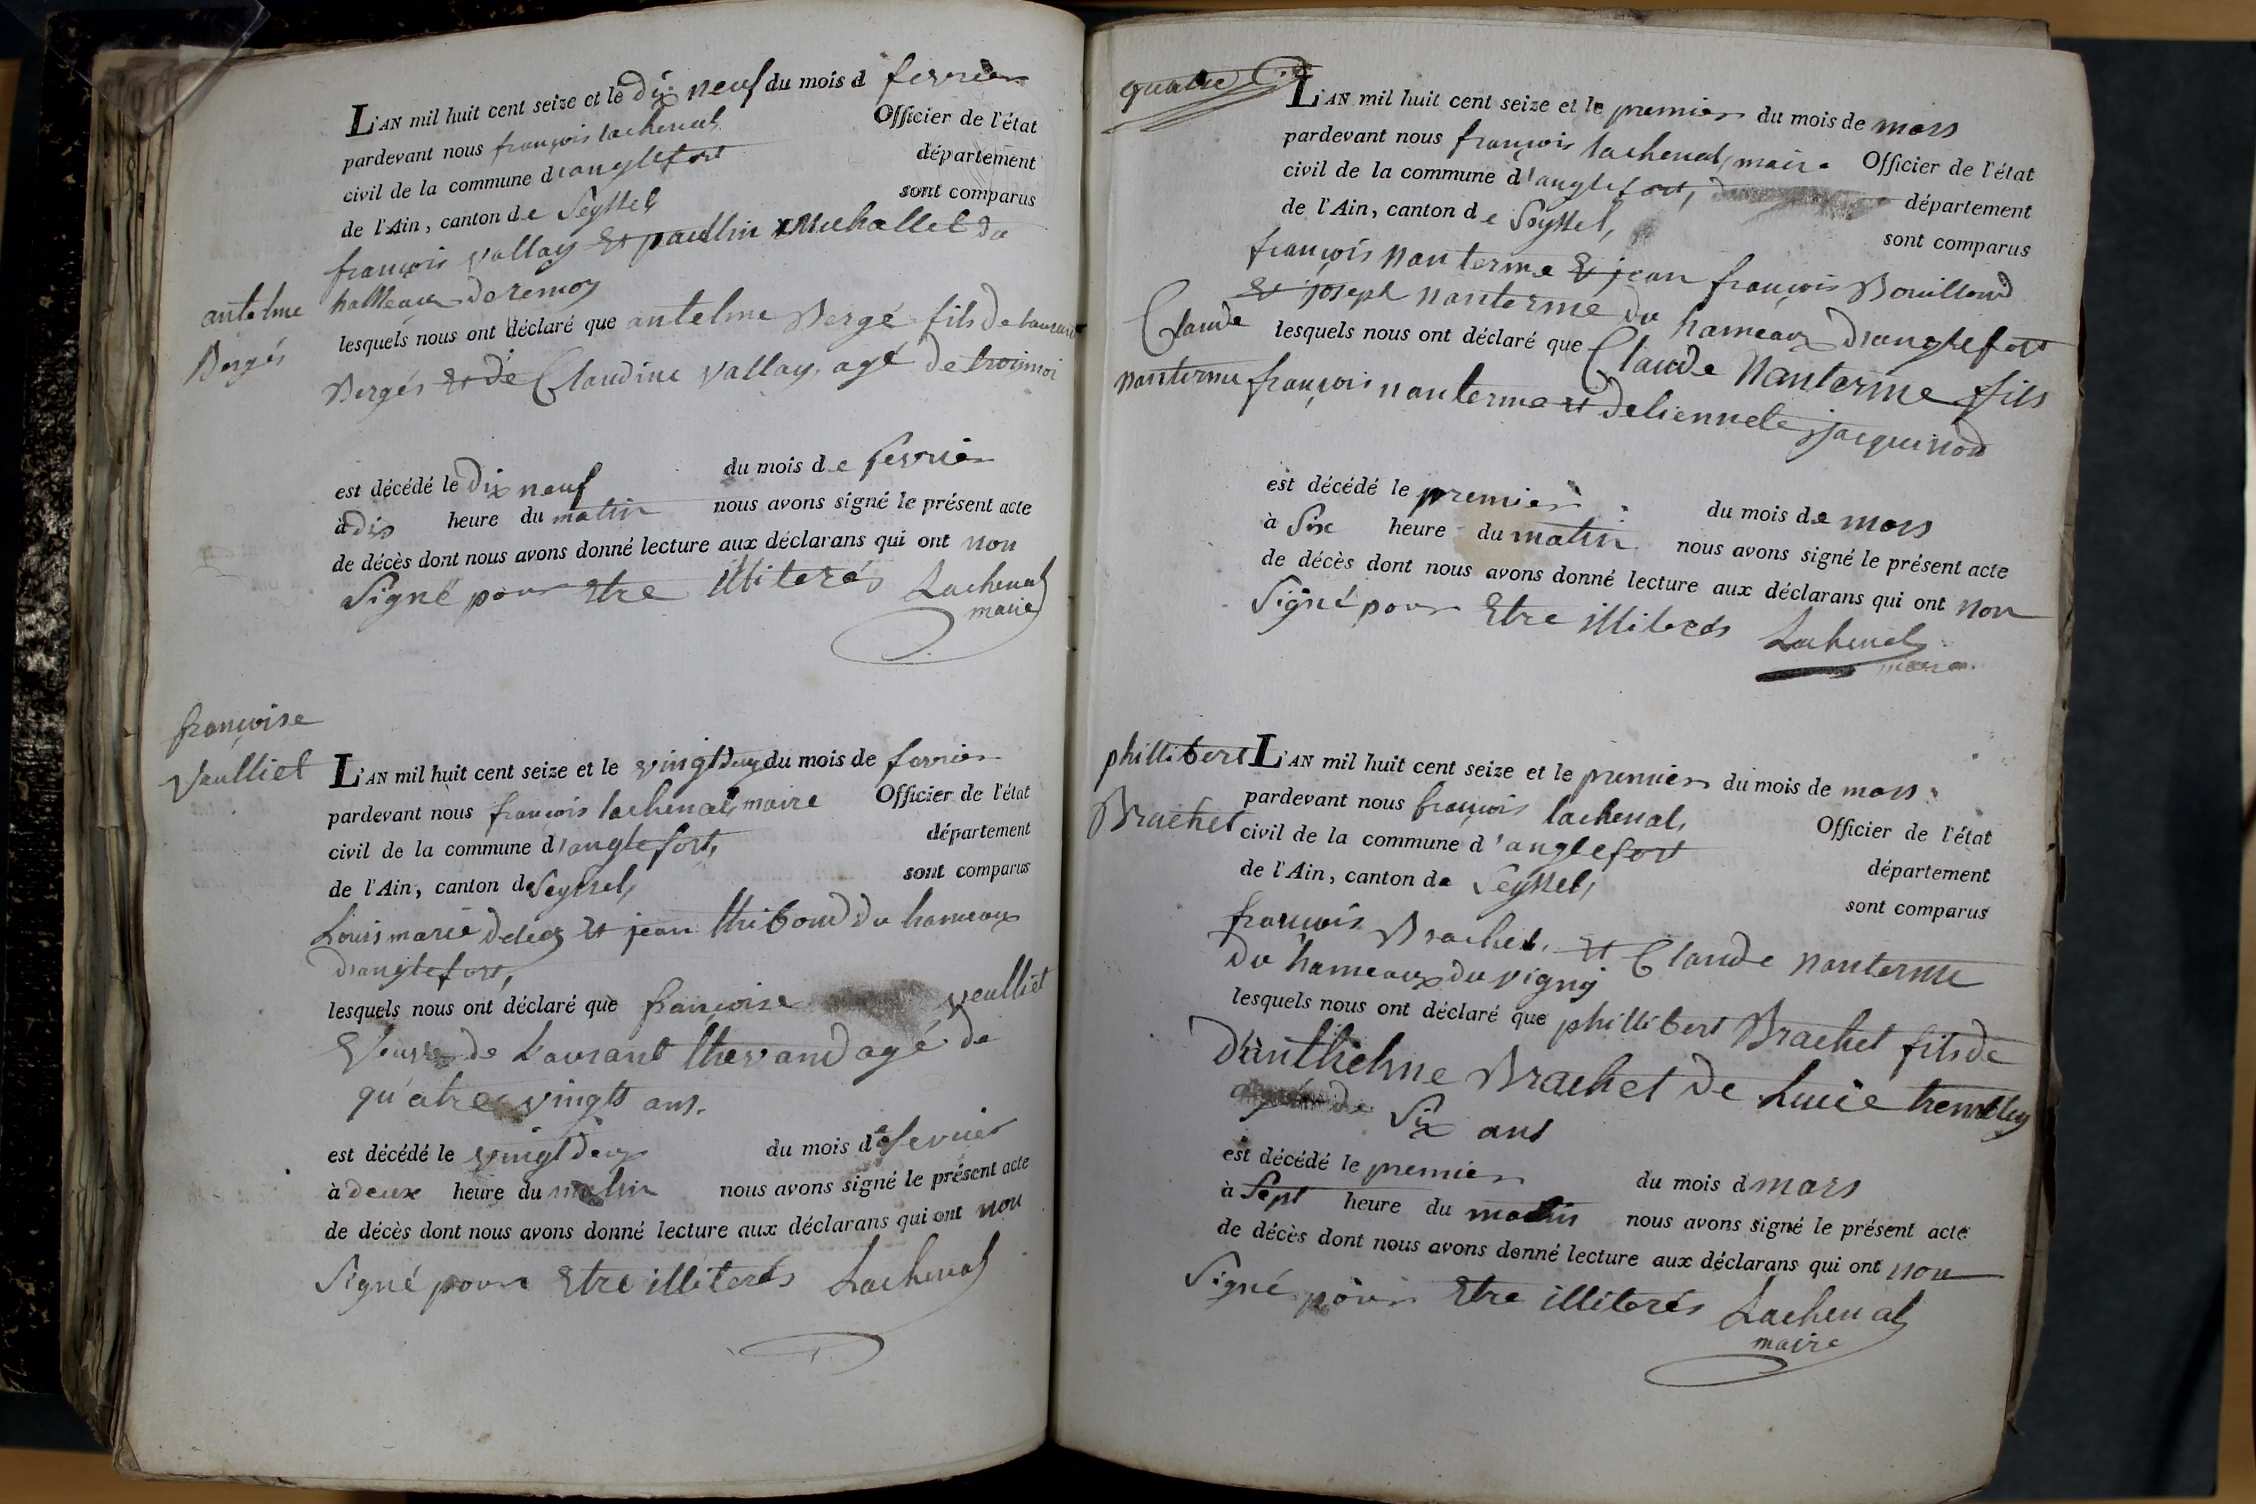 L'AN mil huit cent seize et le dix neuf du mois d fevrier
pardevant nous françois lachenal Officier de l'état
civil de la commune d'anglefort département
de l'Ain, canton de Seyssel sont comparus
françois vallay Et paullin Michallet du
hammeaux de remoz
antelme
Bergés
lesquels nous ont déclaré que antelme Bergé fils de laurant
Bergés Et de Claudine vallay, agé de troi moi
est décédé le dix neuf du mois de fevrier
à dix heure du matin nous avons signé le présent acte
de décès dont nous avons donné lecture aux déclarans qui ont non
Signé pour Etre illiterés Lachenal
maire
françoise
Veulliet
L'AN mil huit cent seize et le vingt deux du mois de fevrier
pardevant nous françois lachenal maire Officier de l'état
civil de la commune d'anglefort, département
de l'Ain, canton de Seyssel, sont comparus
Louis marie Et jean thiboud du hameaux
d'anglefort,
lesquels nous ont déclaré que françoise veulliet
Veuve de Laurant thevand agé de
qu'atre vingts ans.
est décédé le vingt deux du mois de fevrier
à deux heure du matin nous avons signé le présent acte
de décès dont nous avons donné lecture aux déclarans qui ont non
Signé pour Etre illiterés Lachenal
quatre
L'AN mil huit cent seize et le premier du mois de mars
pardevant nous françois lachenal, maire Officier de l'état
civil de la commune d'anglefort, département
de l'Ain, canton de Seyssel, sont comparus
françois nanterme Et jean françois Bouilloud
Et joseph nanterme du hameaux d'anglefort
Claude
nanterme
lesquels nous ont déclaré que Claude Nanterme fils
françois nanterme et detiennete jacquinod
est décédé le premier du mois de mars
à Six heure du matin nous avons signé le présent acte
de décès dont nous avons donné lecture aux déclarans qui ont non
Signé pour Etre illiterés Lachenal
maire
phillibert
Brachet
L'AN mil huit cent seize et le premier du mois de mars
pardevant nous françois lachenal, Officier de l'état
civil de la commune d'anglefort département
de l'Ain, canton de Seyssel, sont comparus
françois Brachet, Et Claude nanterme
du hameaux du vigny
lesquels nous ont déclaré que phillibert Brachet fils de
d'anthelme Brachet de Lucie tremblay
de Six ans
est décédé le premier du mois d mars
à Sept heure du matin nous avons signé le présent acte
de décès dont nous avons donné lecture aux déclarans qui ont non
Signé pour Etre illiterés Lachenal
maire